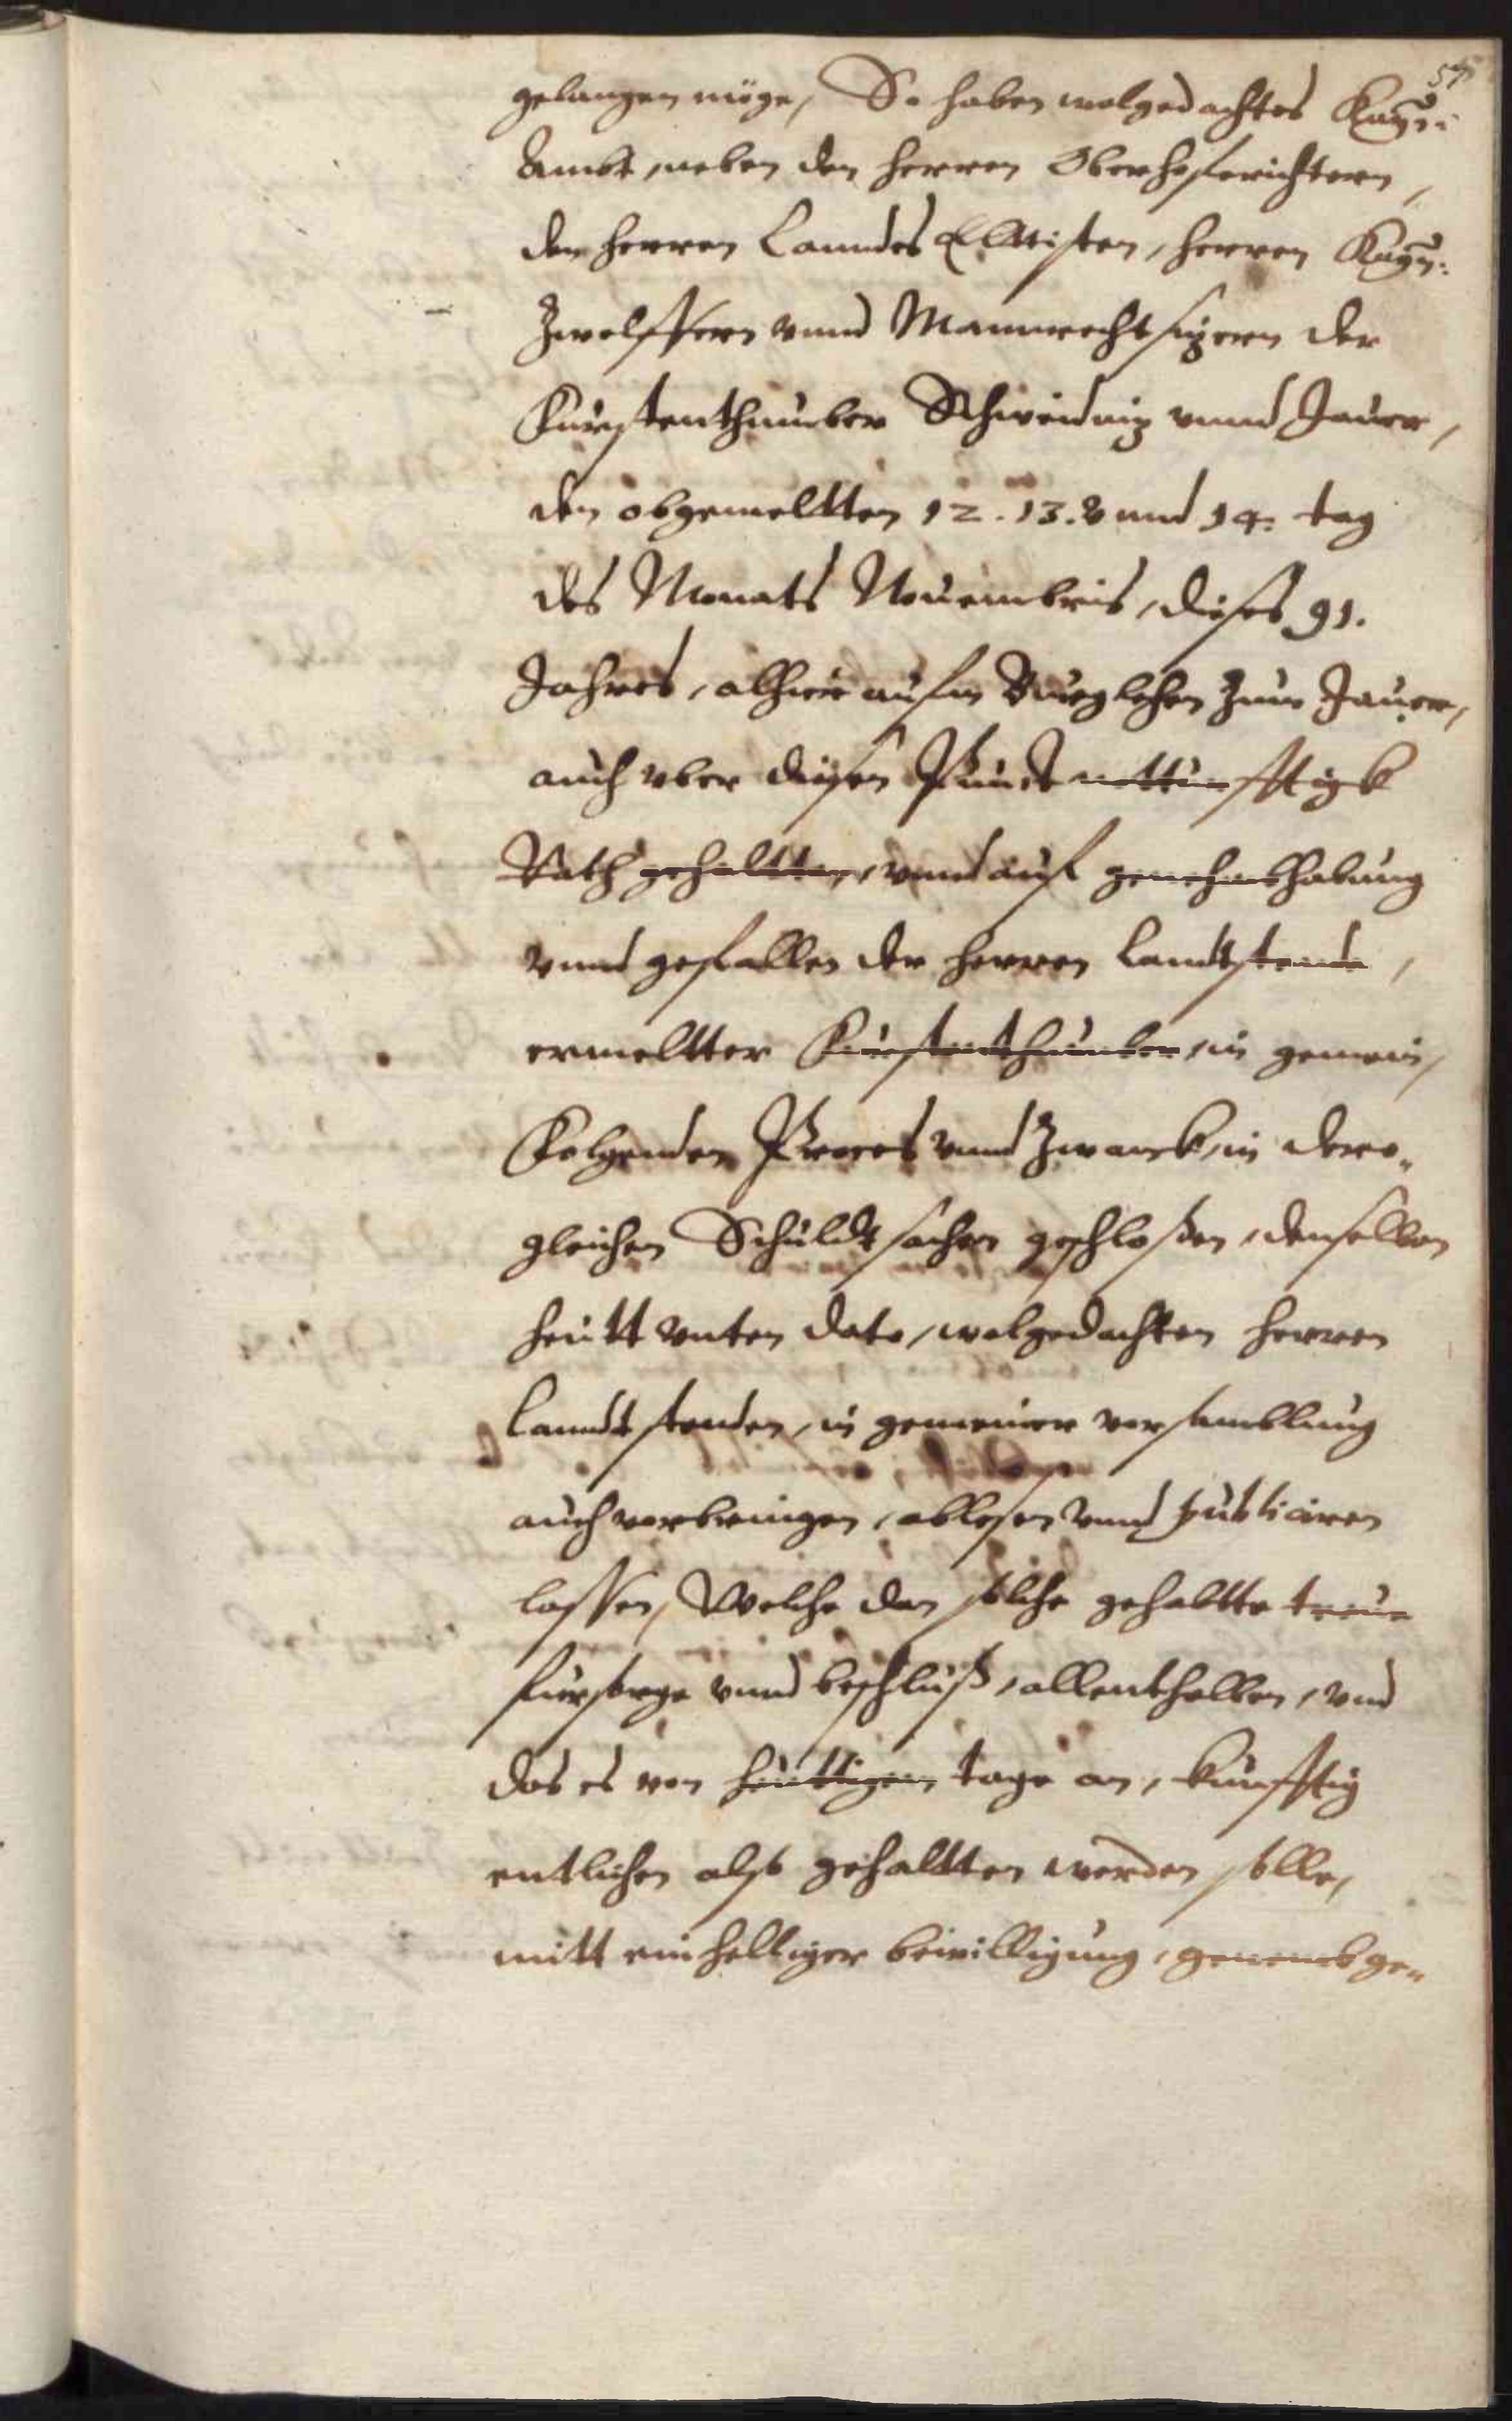 57
gelangen möge, So haben wolgedachtes Kay:
Ambt, neben den herren Oberhoferichtern,
den herren Lanndes Elltisten, herren Kay:
Zwelffern vnnd Mannrechtsizern der
Fürstenthumber Schweidniz vnnd Jauer,
den obgemeltten 12. 13. vnnd 14. tag
des Monats Nouembris, dieses 91.
Jahres, alhier aufm Burglehen zum Jauer,
auch vber diesen Punct notturfftigk
Rath gehaltten, vnnd auf genehmhabung
vnnd gefallen der herren Landtstende,
ermeltter Fürstenthumber, in gemein,
Folgenden Proces vnnd Zwangk, in dero„
gleichen Schuldtsachen geschloßen, denselben
heutt vnten dato, wolgedachten herren
Landtstenden, in gemeiner versamblung
auch vorbringen, ablesen vnnd publiciren
lassen, Welche den solche gehaltte treue
fürsorge vnnd beschluß, allenthalben, vnd
das es von heuttigem tage an, künfftig
entlichen also gehaltten werden solle,
mitt einhelliger bewilligung, genemb ge„